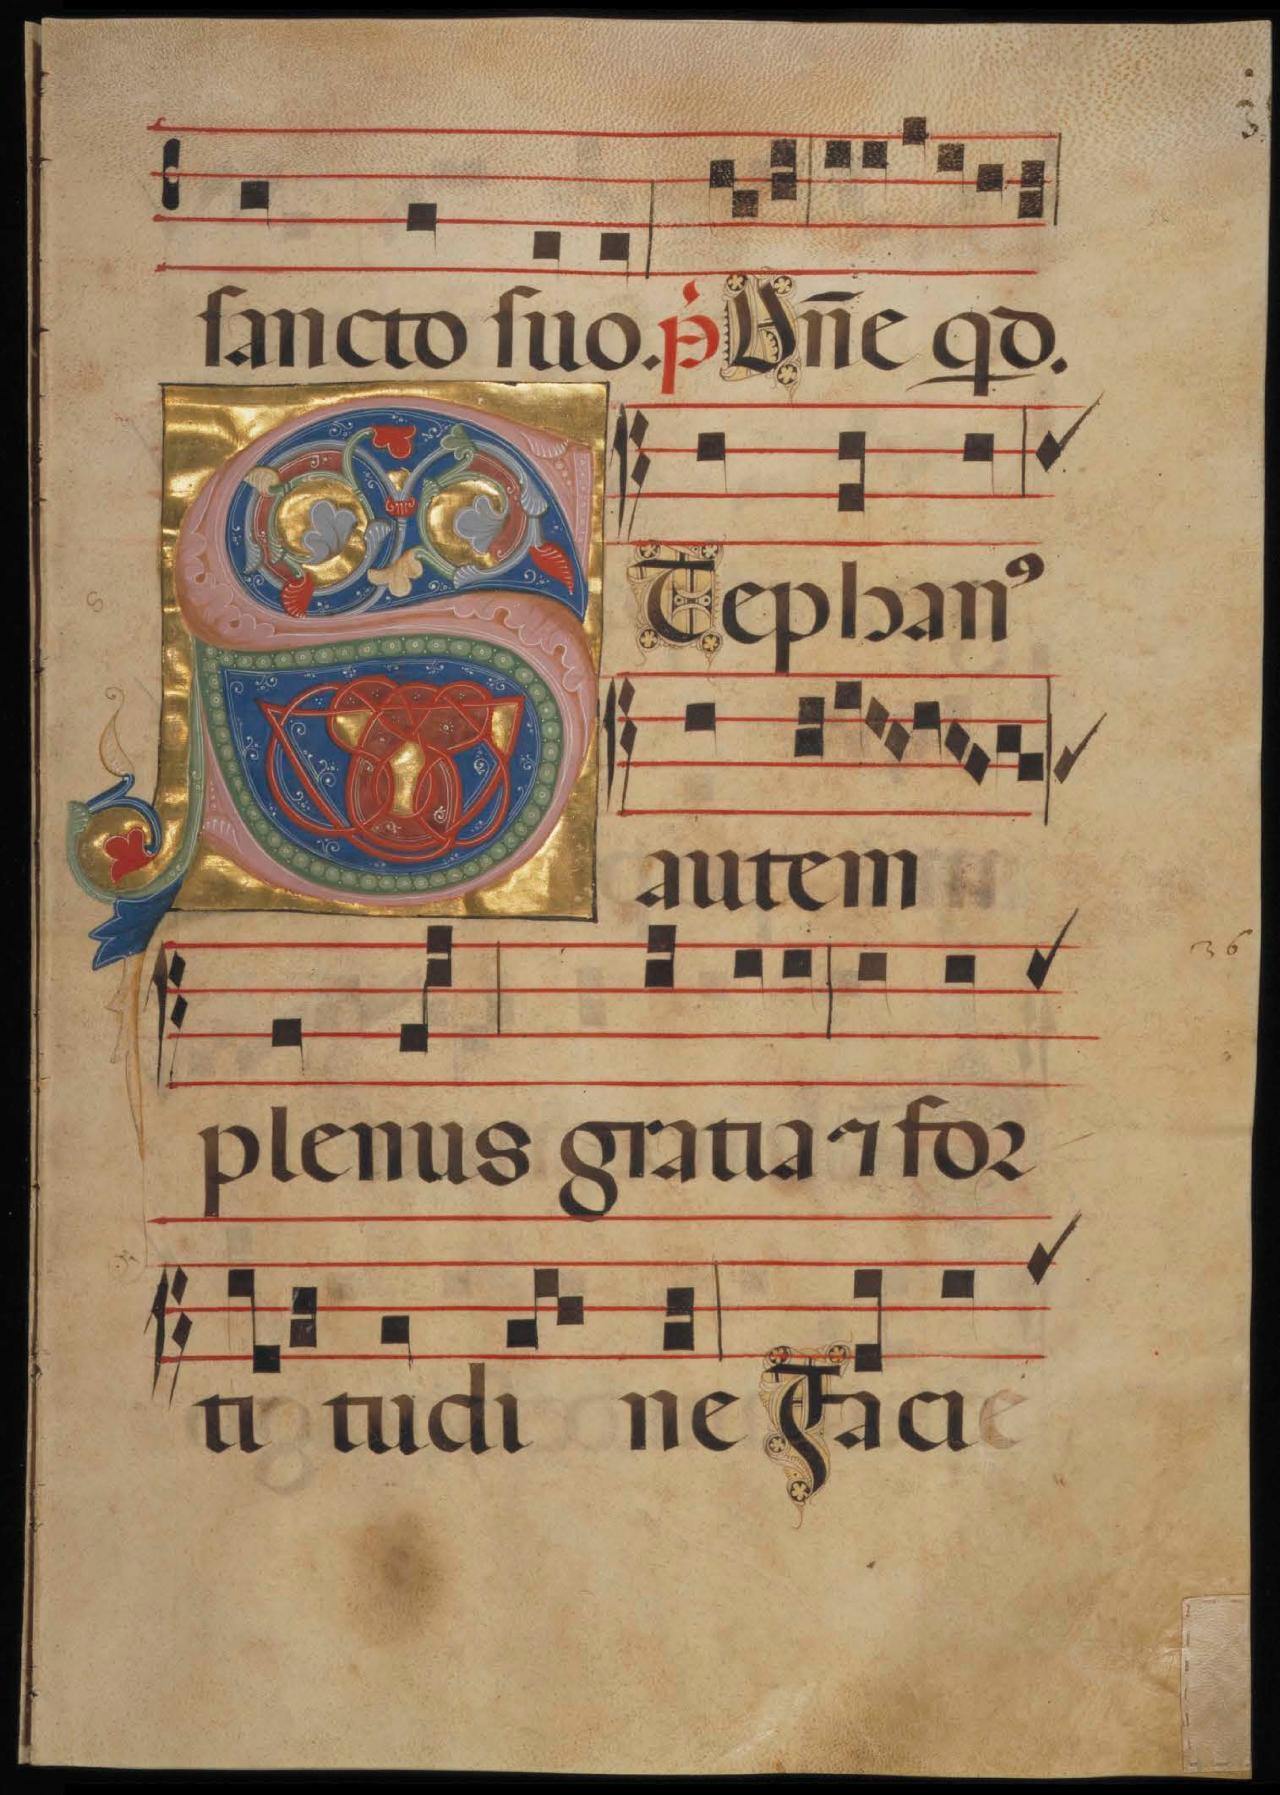 sancto suo. p̄s Dn̄e qd.
STephanꝰ
autem
plenus gratia ⁊ for
ti tudi ne Facie
36